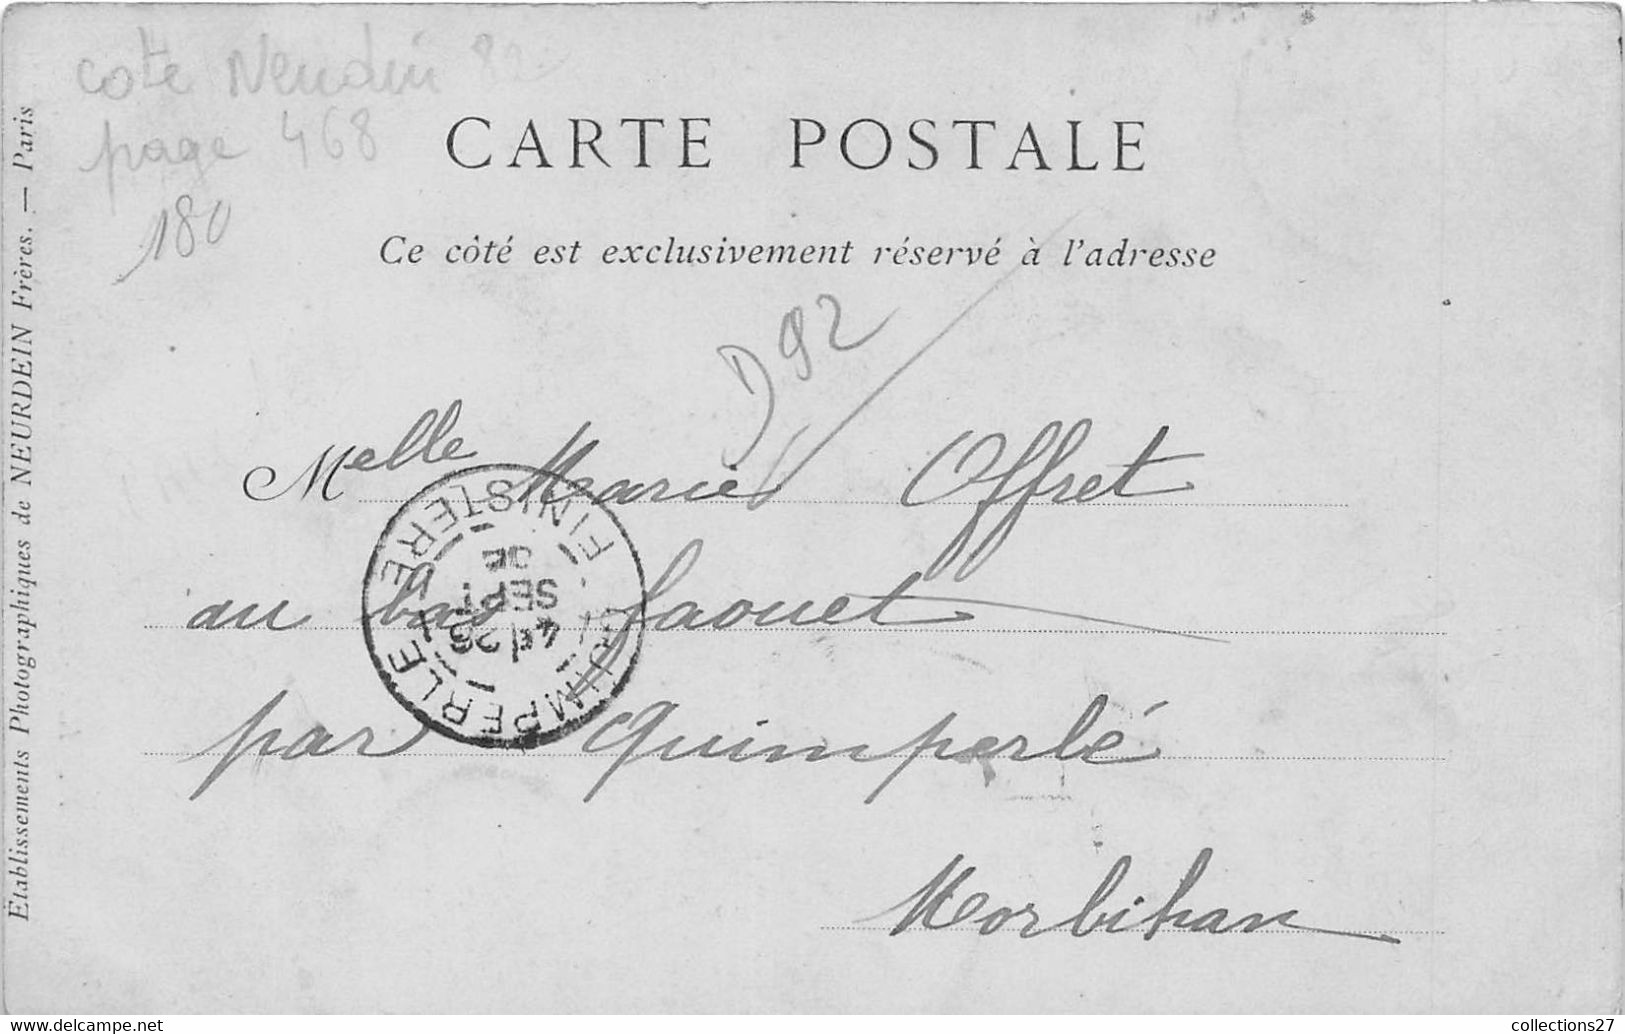 cote Neudin 82
page 468
180
CARTE POSTALE
Ce côté est exclusivement réservé à l'adresse
D92
Melle Marie Offret
au bas faouet
par Quimperlé
Morbihan
QUIMPERLE
FINISTERE
26
SEPT
Etablissements Photographiques de NEURDEIN Frères. — Paris
collections27